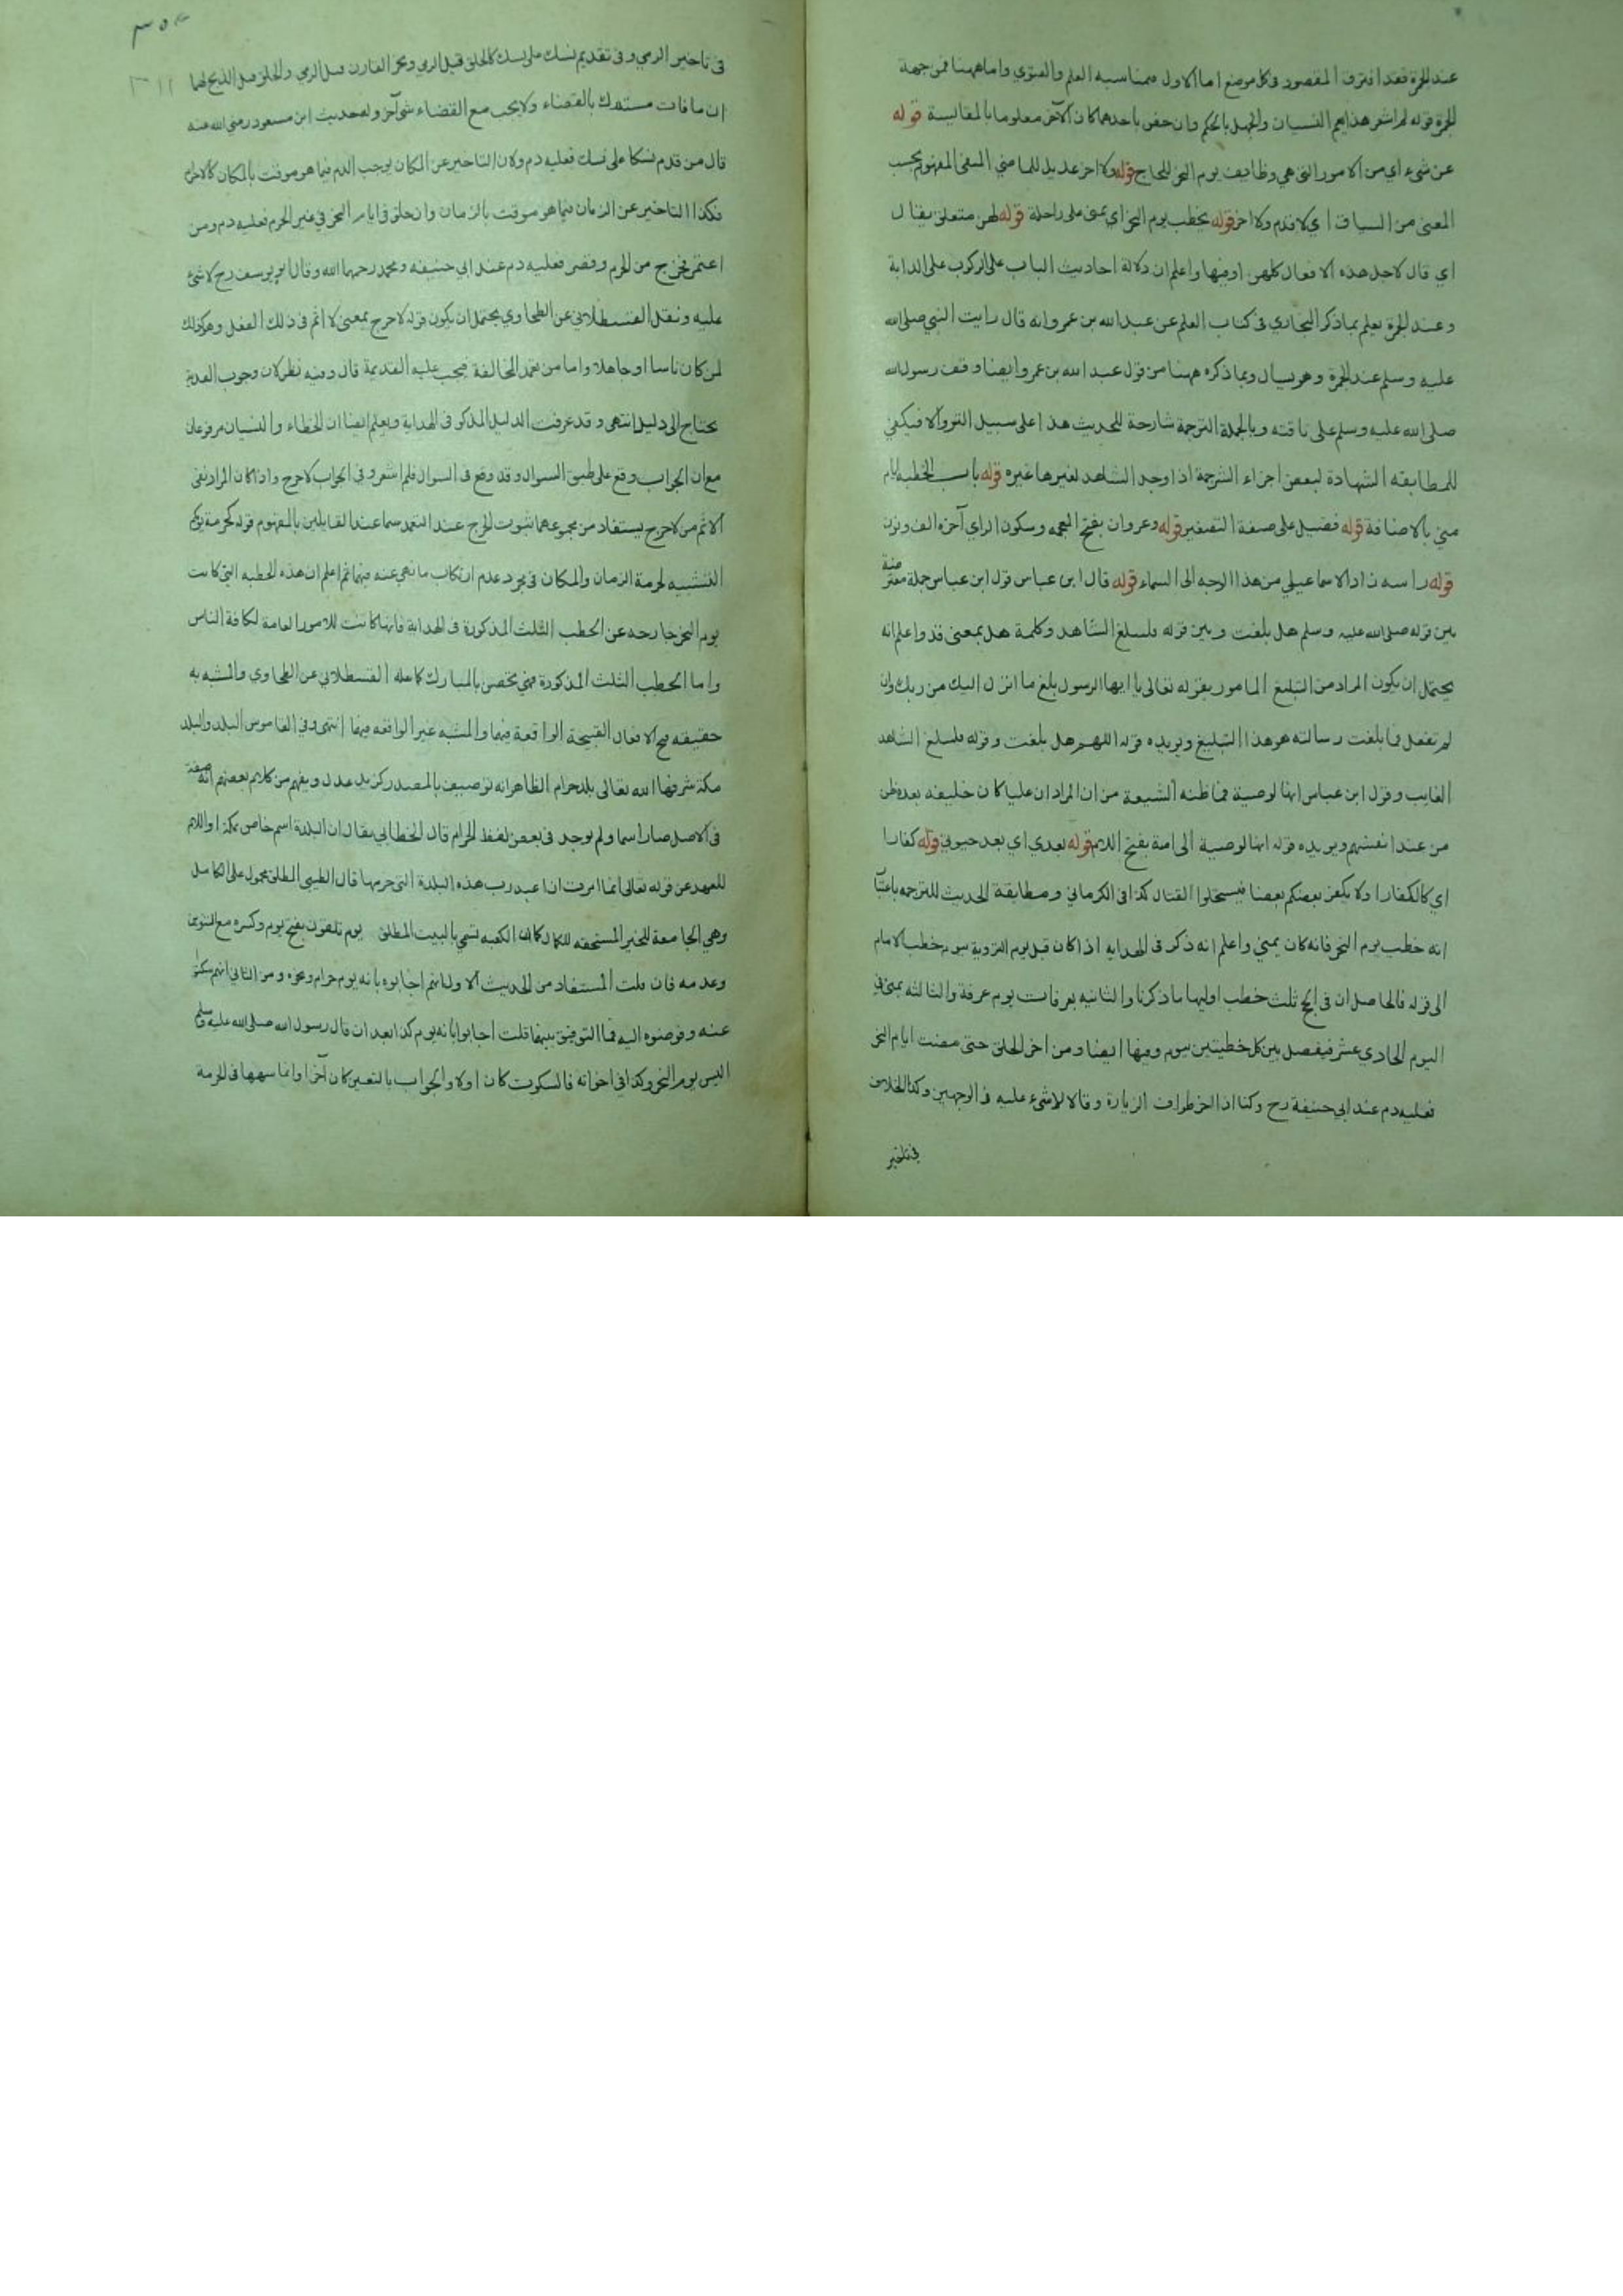 عند الجمرة فقد افترق المقصود في كل موضع اما الاول فمناسبه العلم والفتوي واما ههنا فمن جهة
الجمرة قوله لم اشعر هذا يعم النسيان والجهل بالحكم وان خص باحدهما كان الآخر معلوما بالمقايسة قوله
عن شيء اي من الامور التي هي وظايف يوم النحر للحاج قوله ولا اخر عديل للماضي المنفي المفهوم بحسب
المعنى من السياق اي لا قدم ولا اخر قوله يخطب يوم النحر اي بمنى على راحلة قوله لهن متعلق بقال
اي قال لاجل هذه الافعال كلهن اوفيها واعلم ان دلالة احاديث الباب على الركوب على الدابة
وعند الجمرة يعلم بما ذكر البخاري في كتاب العلم عن عبد الله بن عمرو انه قال رايت النبي صلى الله
عليه وسلم عند الجمرة وهو يسال وبما ذكره ههنا من قول عبد الله بن عمرو ايضا وقف رسول الله
صلى الله عليه وسلم على ناقته وبالجملة الترجمة شارحة للحديث هذا على سبيل التنزل والا فيكفي
للمطابقه الشهادة لبعض اجزاء الترجمة اذا وجد الشاهد لغيرها غيره قوله باب الخطبه ايام
مني بالاضافة قوله فضيل على صيغة التصغير قوله وغزوان بفتح المعجمه وسكون الزاي آخره الف ونون
قوله راسه زاد الاسماعيلي من هذا الوجه الى السماء قوله قال ابن عباس قول ابن عباس جملة معترضة
بين قوله صلى الله عليه وسلم هل بلغت وبين قوله فليبلغ الشاهد وكلمة هل بمعنى قد واعلم انه
يحتمل ان يكون المراد من التبليغ المامور بقوله تعالى يا ايها الرسول بلغ ما انزل اليك من ربك وان
لم تفعل فما بلغت رسالته هو هذا التبليغ ويريده قوله اللهم هل بلغت وقوله فليبلغ الشاهد
الغايب وقول ابن عباس انها لوصية فما ظنه الشيعة من ان المراد ان عليا كان خليفه بعده ظن
من عند انفسهم ويريده قوله انها لوصية الى امته بفتح اللام قوله بعدي اي بعد حيوتي قوله كفارا
اي كالكفار او لا يكفر بعضكم بعضا فيستحلوا القتال كذا في الكرماني ومطابقة الحديث للترجمه باعتبار
انه خطب يوم النحر فانه كان بمنى واعلم انه ذكر في الهدايه اذا كان قبل يوم التروية بيوم خطب الامام
الى قوله فالحاصل ان في الحج ثلث خطب اوليها ما ذكرنا والثانيه بعرفات يوم عرفة والثالثه بمنى في
اليوم الحادي عشر فيفصل بين كل خطبتين بيوم وفيها ايضا ومن اخر الحلق حتى مضت ايام النحر
فعليه دم عند ابي حنيفة رح وكذا اذا اخر طواف الزيارة وقالا لا شيء عليه في الوجهين وكذا الخلاف
في تاخير
في تاخير الرمي وفي تقديم نسك على نسك كالحلق قبل الرمي ونحر القارن قبل الرمي والحلق قبل الذبح لهما
ان ما فات مستدرك بالقضاء ولا يجب مع القضاء شي آخر وله حديث ابن مسعود رضي الله عنه
قال من قدم نسكا على نسك فعليه دم ولان التاخير عن المكان يوجب الدم فيما هو موقت بالمكان كالاحرام
فكذا التاخير عن الزمان فيما هو موقت بالزمان وان حلق في ايام النحر في غير الحرم فعليه دم ومن
اعتمر فخرج من الحرم وقصر فعليه دم عند ابي حنيفه ومحمد رحمهما الله وقال ابو يوسف رح لا شئ
عليه ونقل القسطلاني عن الطحاوي يحتمل ان يكون قوله لا حرج بمعنى لا اثم في ذلك الفعل وهو كذلك
لمن كان ناسيا او جاهلا واما من تعمد المخالفة فيجب عليه الفدية قال وفيه نظر لان وجوب الفدية
يحتاج الى دليل انتهى وقد عرفت الدليل المذكور في الهداية ويعلم ايضا ان الخطاء والنسيان مرفوعان
مع ان الجواب وقع على طبق السوال وقد وقع في السوال فلم اشعر وفي الجواب لا حرج واذا كان المراد نفي
الاثم من لا حرج يستفاد من مجموعهما ثبوت الحرج عند التعمد سيما عند القايلين بالمفهوم قوله كحرمة يومكم
التشبيه لحرمة الزمان والمكان في مجرد عدم ارتكاب ما نهي عنه فيهما ثم اعلم ان هذه الخطبه التي كانت
يوم النحر خارجه عن الخطب الثلث المذكورة في الهداية فانها كانت للامور العامة لكافة الناس
واما الخطب الثلث المذكورة فهي تختص بالمناسك كما نقله القسطلاني عن الطحاوي والمشبه به
حقيقه قبح الافعال القبيحة الواقعة فيها والمشبه غير الواقعه فيها انتهى وفي القاموس البلد والبلد
مكة شرفها الله تعالى بلد حرام الظاهر انه توصيف بالمصدر كزيد عدل ويفهم من كلام بعضهم انه صفة
في الاصل صار اسما ولم يوجد في بعض لفظ الحرام قال الخطابي يقال ان البلدة اسم خاص بمكة او اللام
للعهد عن قوله تعالى انما امرت ان اعبد رب هذه البلدة التي حرمها قال الطيبي المطلق محمول على الكامل
وهي الجامعة للخير المستحقه للكمال كما ان الكعبه تسمي بالبيت المطلق يوم تلقون بفتح يوم وكسره مع التنوين
وعدمه فان قلت المستفاد من الحديث الاول انهم اجابوه بانه يوم حرام وغيره ومن الثاني انهم سكتوا
عنه وفوضوه اليه فما التوفيق بينهما قلت اجابوا بانه يوم كذا بعد ان قال رسول الله صلى الله عليه وسلم
اليس يوم النحر وكذا في اخواته فالسكوت كان اولا والجواب بالتعيين كان آخرا وانما شبهها في الحرمة